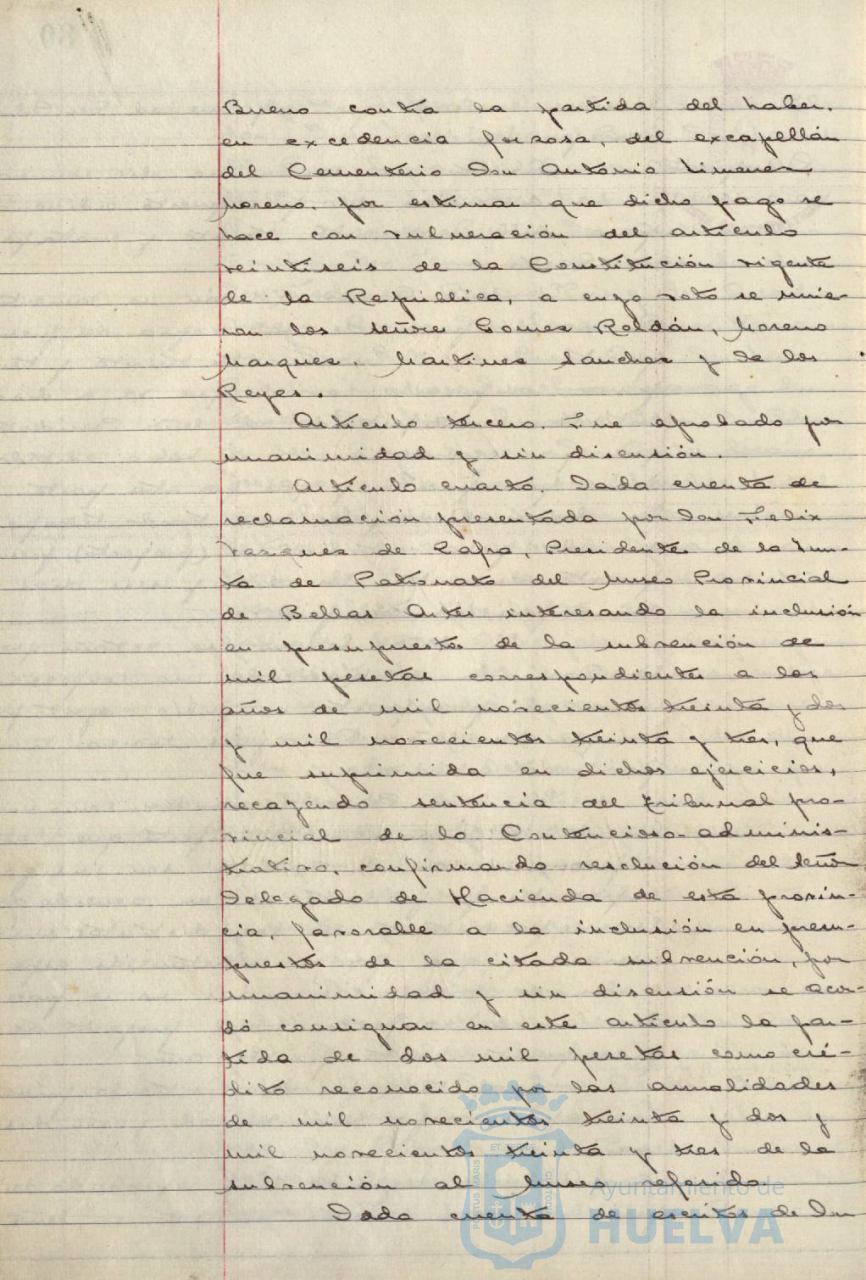 Bueno contra la partida del haber.
en excedencia forzosa, del excapellán
del Cementerio Don Antonio Jimenez
Moreno, por estimar que dicho pago se
hace con vulneración del artículo
veintiseis de la Constitución vigente
de la República, a cuyo voto se unie-
ron los señores Gomez Roldán, Moreno
Marquez, Martinez Sanchez y de los
Reyes.
Artículo tercero. Fue aprobado por
unanimidad y sin discusión.
Artículo cuarto. Dada cuenta de
reclamación presentada por Don Felix
Vazquez de Zafra, Presidente de la Jun-
ta de Patronato del Museo Provincial
de Bellas Artes interesando la inclusión
en presupuestos de la subvención de
mil pesetas correspondientes a los
años de mil novecientos treinta y dos
y mil novecientos treinta y tres, que
fue suprimida en dichos ejercicios,
recayendo sentencia del Tribunal pro-
vincial de lo Contencioso-adminis-
trativo, confirmando resolución del señor
Delegado de Hacienda de esta provin-
cia, favorable a la inclusión en presu-
puestos de la citada subvención, por
unanimidad y sin discusión se acor-
dó consignar en este artículo la par-
tida de dos mil pesetas como cré-
dito reconocido por las anualidades
de mil novecientos treinta y dos y
mil novecientos treinta y tres de la
subvención al Museo referido
Dada cuenta de escritos de Don
Ayuntamiento de
HUELVA